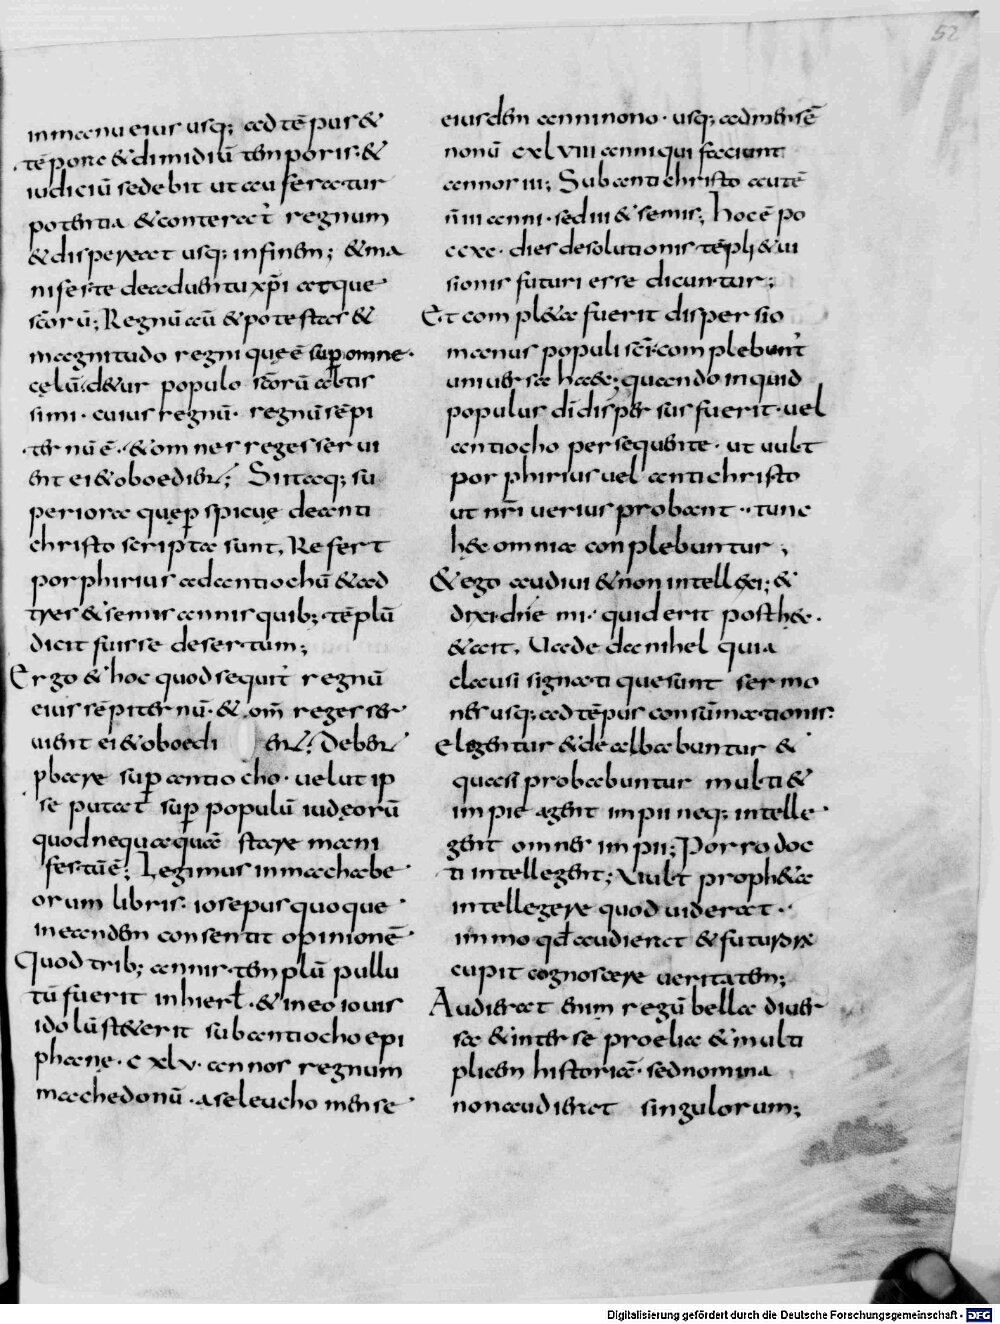 52
in manu eius usq; ad tēpus &
tēpora & dimidiū temporis· &
iudiciū sedebit ut auferatur
potentia & conterat᷑ regnum
& dispereat usq; in finem; & ma
nifeste de aduentu xp̄i atque
sc̄orū; Regnū aū & potestas &
magnitudo regni quę ē sup omne·
cęlū· detur populo sc̄orū altis
simi· cuius regnū· regnū sēpi
ternū ē· & omnes reges serui
ent ei & oboedient; Sintaq; su
periora quę pspicue de anti
christo scripta sunt, Refert
porphirius ad antiochū & ad
tres & semis annis quib; tēplū
dicit fuisse desertum;
Ergo & hoc quod sequit᷑ regnū
eius sēpiternū· & om̄ reges ser
uient ei & oboedi ent· Debent
pbare sup antiocho· uelut ip
se putat sup populū iudęorū
quod nequaquā stare mani
festū ē; Legimus in machabe
orum libris· iosepus quoque
in eandem consentit opinionē
Quod trib; annis templū pullu
tū fuerit in hierl̄· & in eo iouis
idolū steterit sub antiocho epi
phane· cxlv· annos regnum
machedonū· a seleucho mense
eiusdem anni nono· usq; ad mensē
nonū cxlviii anni qui faciunt
annos iii; Sub antichristo autē
n̄ iii anni· sed iii & semis; hoc ē po
ccxc· dies desolutionis tēpli & ui
sionis futuri esse dicuntur;
Et com pleta fuerit dispersio
manus populi sc̄i· complebunt᷑
uniuersa haec; quando inquid
populus dī dispersus fuerit· uel
antiocho persequente· ut uult
porphirius uel antichristo
ut nr̄i uerius probant·· tunc
hęc omnia conplebuntur;
& ego audiui & non intellexi; &
dixi· dn̄e mi· quid erit post hęc·
& ait, Uade danihel quia
clausi signati que sunt sermo
nes usq; ad tēpus consūmationis·
eligentur & dealbabuntur &
quasi probabuntur multi &
impie agent impii neq; intelle
gent omnes impii; Porro doc
ti intellegent; Vult propheta
intellegere quod uiderat··
immo qđ audierat & futurorū
cupit cognoscere ueritatem;
Audierat enim regū bella diuer
sa & inter se proelia & multi
plicem historiā· sed nomina
non audierat singulorum;
Digitalisierung gefördert durch die Deutsche Forschungsgemeinschaft - DFG